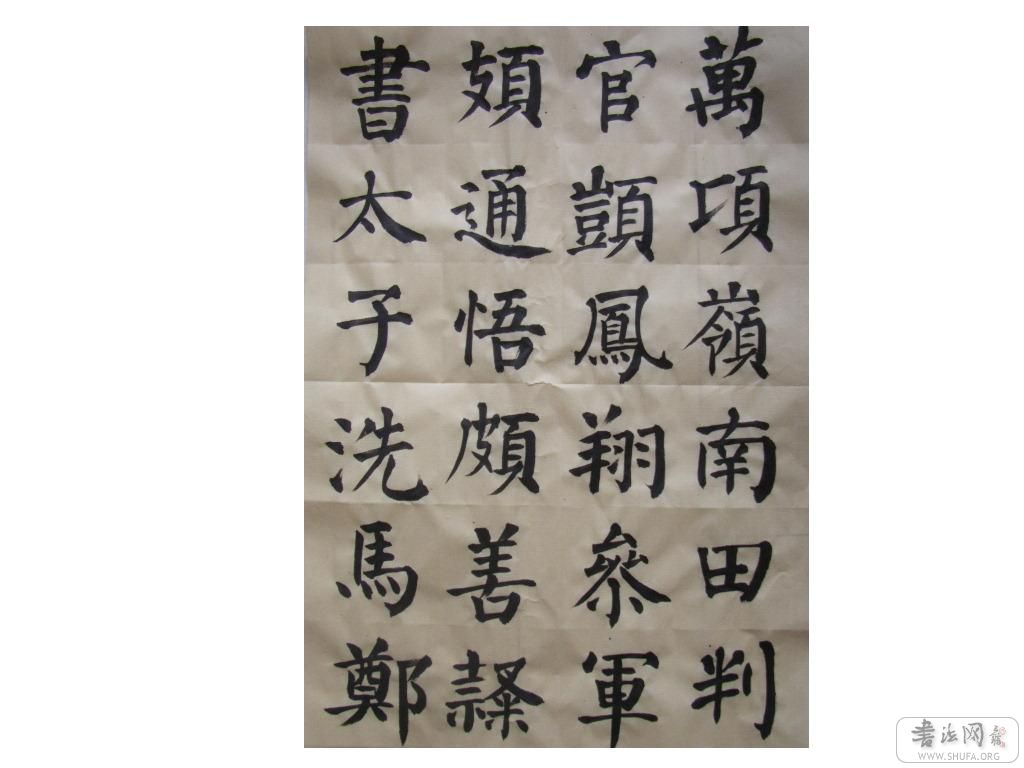 萬頃嶺南田判
官顗鳳翔參軍
頍通悟頗善隸
書太子洗馬鄭
書法网
WWW.SHUFA.ORG